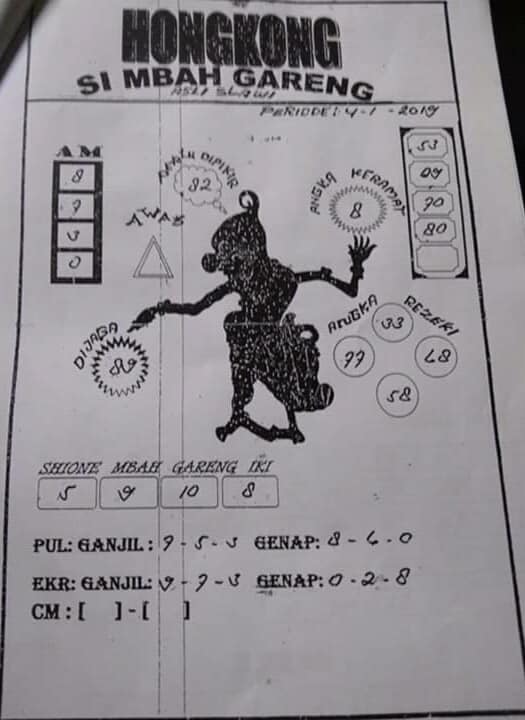 HONGKONG
SI MBAH GARENG
ASLI SLAWI
PERIODE: 4-1-2019
AM
8
7
3
0
APALU DIPIKIR
82
AWAS
ANGKA KERAMAT
8
53
09
70
80
DIJAGA
89
ANGKA REZEKI
33
77
68
58
SHIONE MBAH GARENG IKI
5 9 10 8
PUL: GANJIL: 7 - 5 - 3 GENAP: 8 - 6 - 0
EKR: GANJIL: 9 - 7 - 3 GENAP: 0 - 2 - 8
CM : [ ] - [ ]